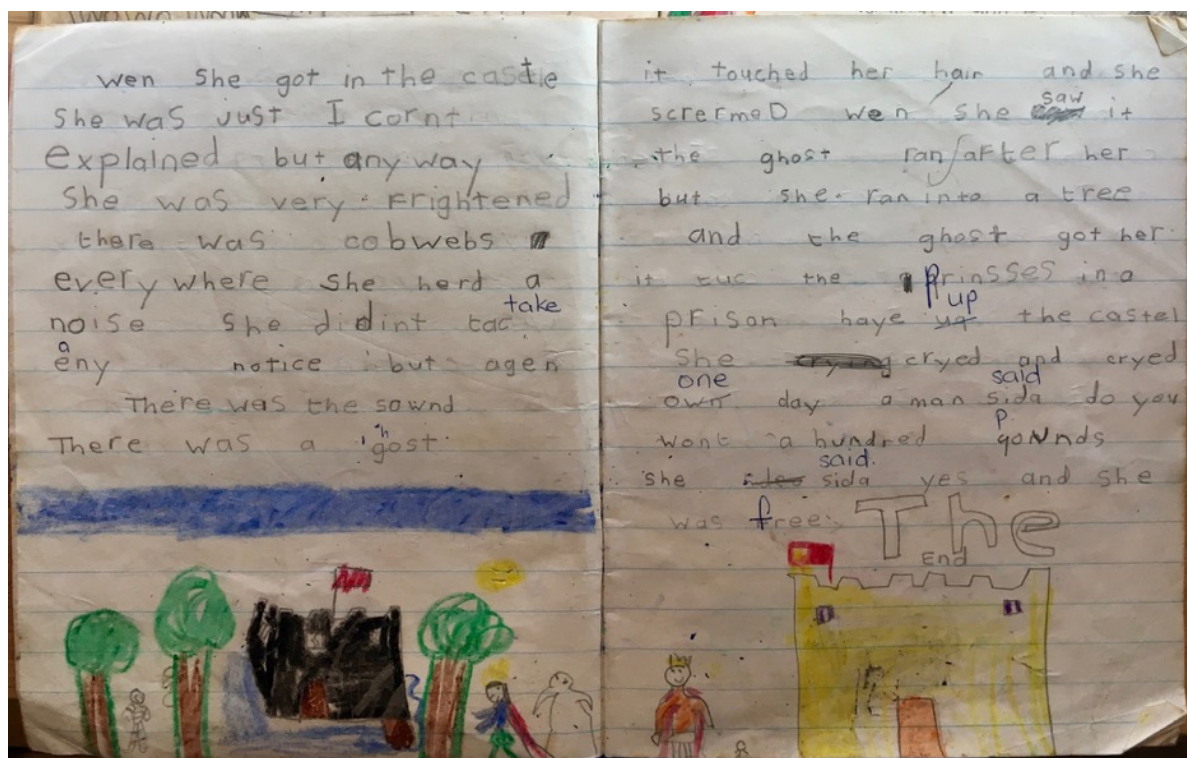 wen she got in the castle
she was just I cornt
explained but any way
She was very frightened
there was cobwebs
every where she herd a
take
noise she didint tac
a
eny notice but agen
There was the sownd
h
There was a gost
it touched her hair and she
saw
scrermeD wen she it
the ghost ran after her
but she ran into a tree
and the ghost got her
it tuc the prinsses in a
up
prison haye up the castel
She crying cryed and cryed
one said
own day a man sida do you
p
wont a hundred qoNnds
said.
she sida yes and she
was free. The
End